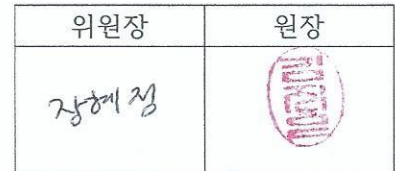 위원장 원장
장혜정